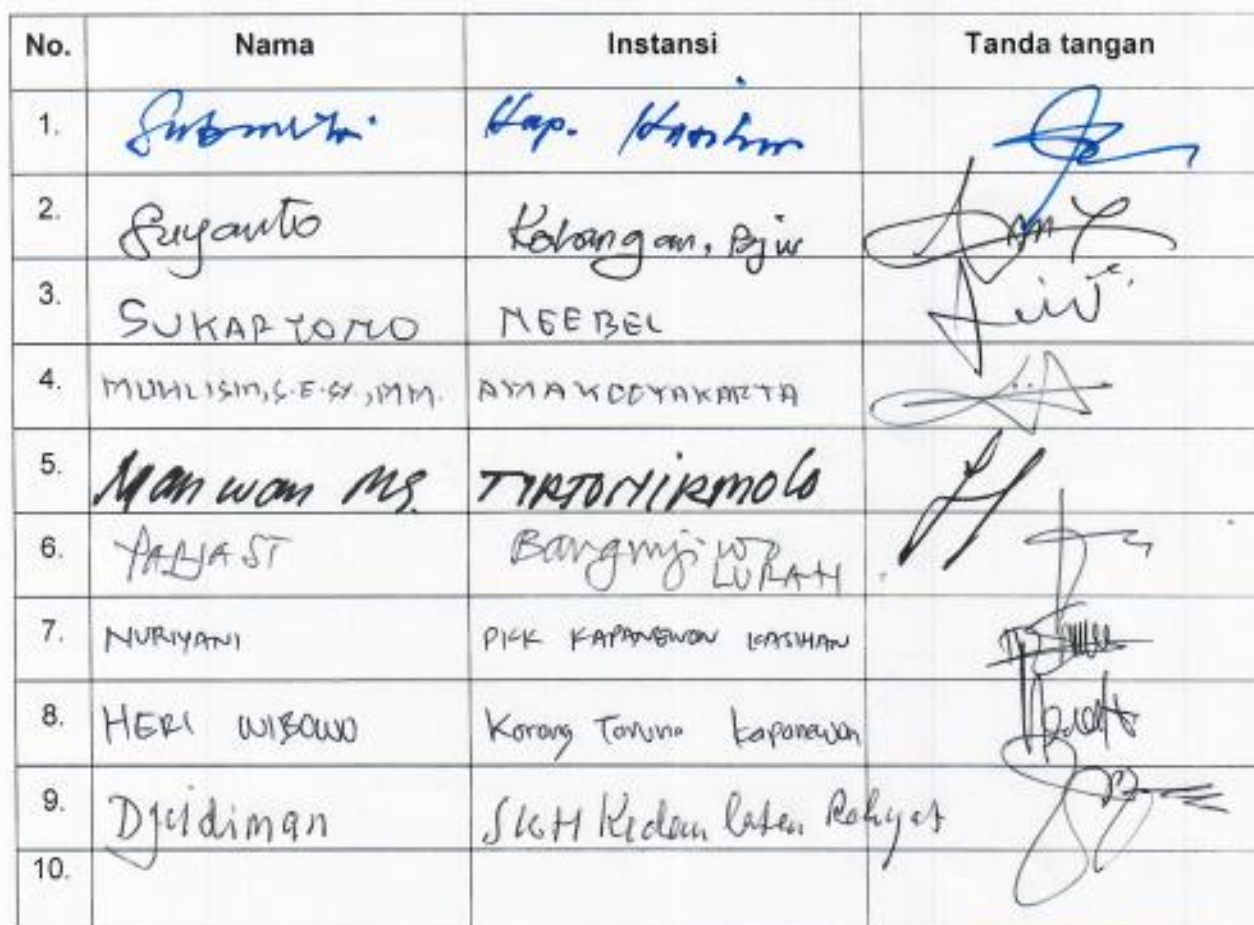 No. Nama Instansi Tanda tangan
1. Kap. Kasihan
2. Suyanto Kalangan, Bjiw
3. SUKARYONO NGEBEL
4. MUHLISIN, S.E.Sy., MM. AMA YOGYAKARTA
5. Marwan MS. TIRTONIRMOLO
6. PARJA ST Bangunjiwo
LURAH
7. NURIYANI PKK KAPANEWON KASIHAN
8. HERI WIBOWO Karang Taruna Kapanewon
9. Djudiman SKH Kedaulatan Rakyat
10.